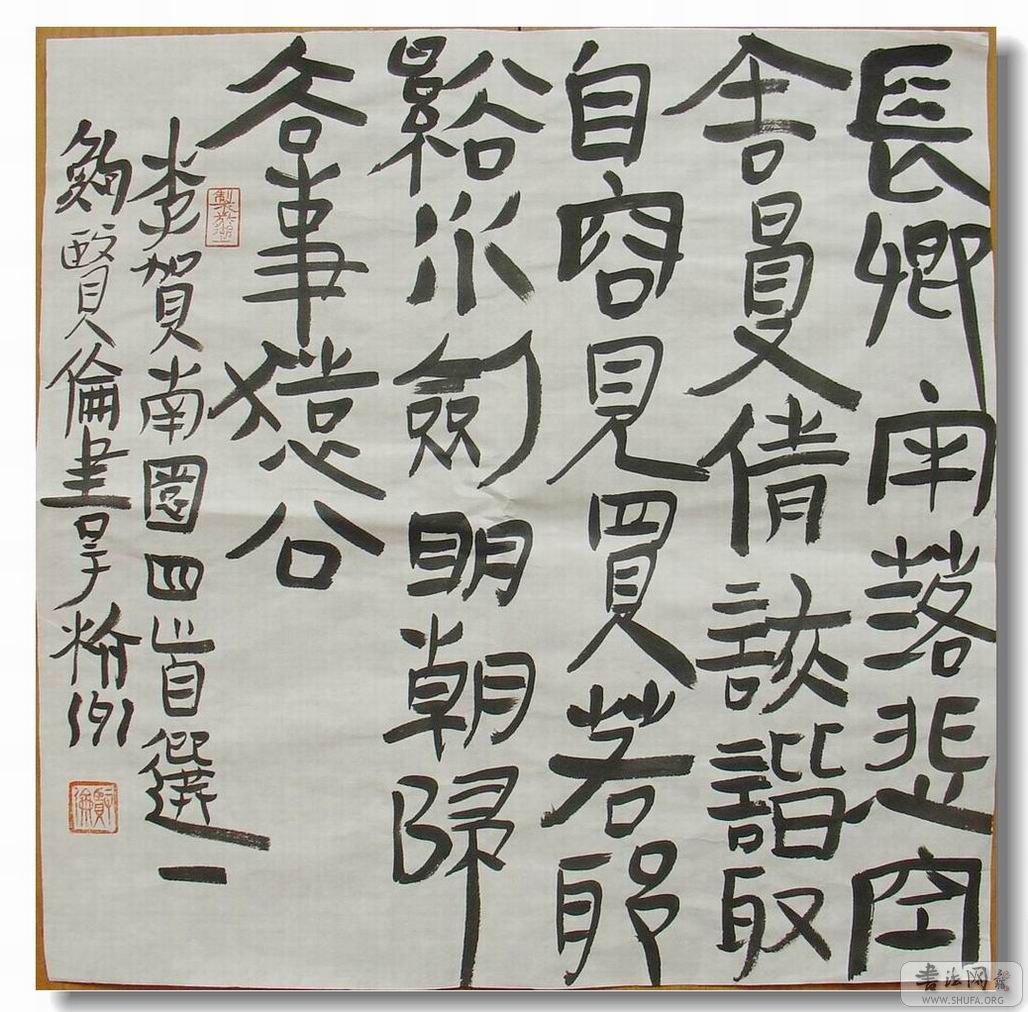 長卿牢落悲空
舍曼倩詼諧取
自容見買若耶
谿水劍明朝歸
去事猿公
李賀南園四首選一
鮑賢倫書
賢倫
书法网
WWW.SHUFA.ORG